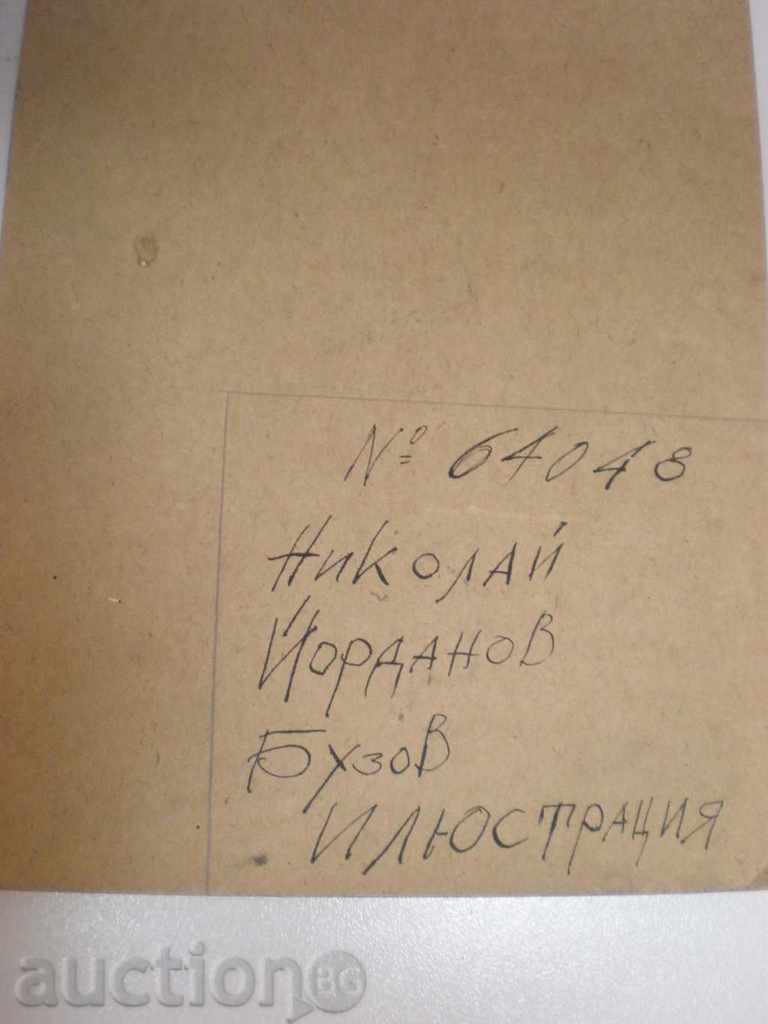 № 64048
Николай
Йорданов
Бузов
Илюстрация
auction BG